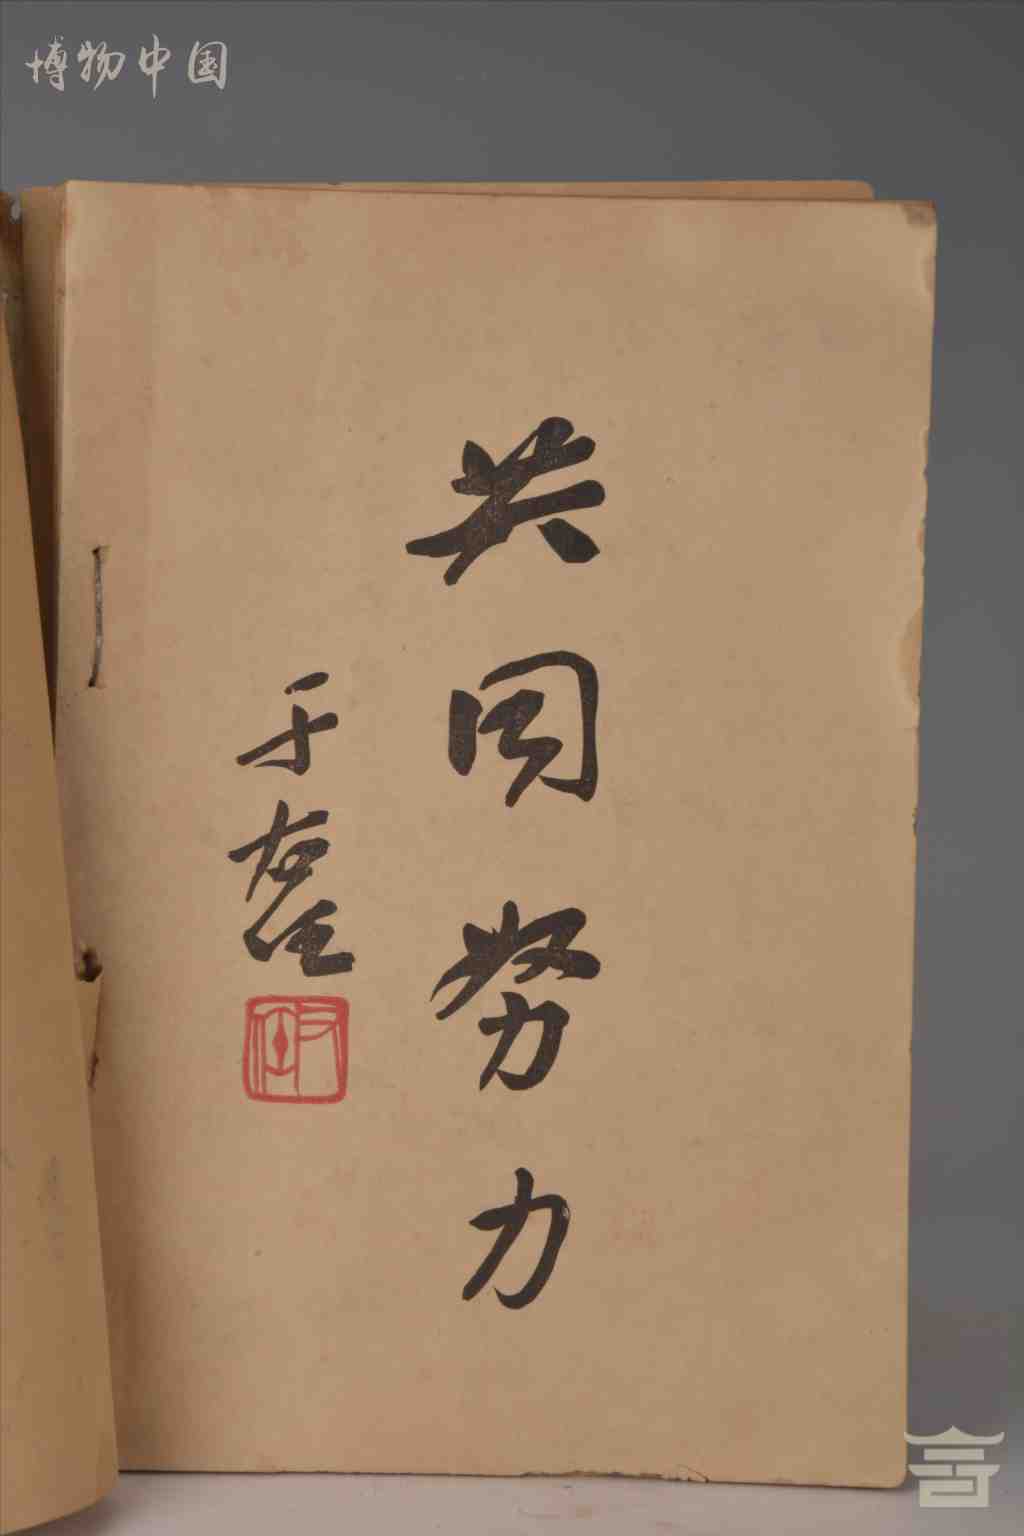 博物中国
共同努力
于右任
右任